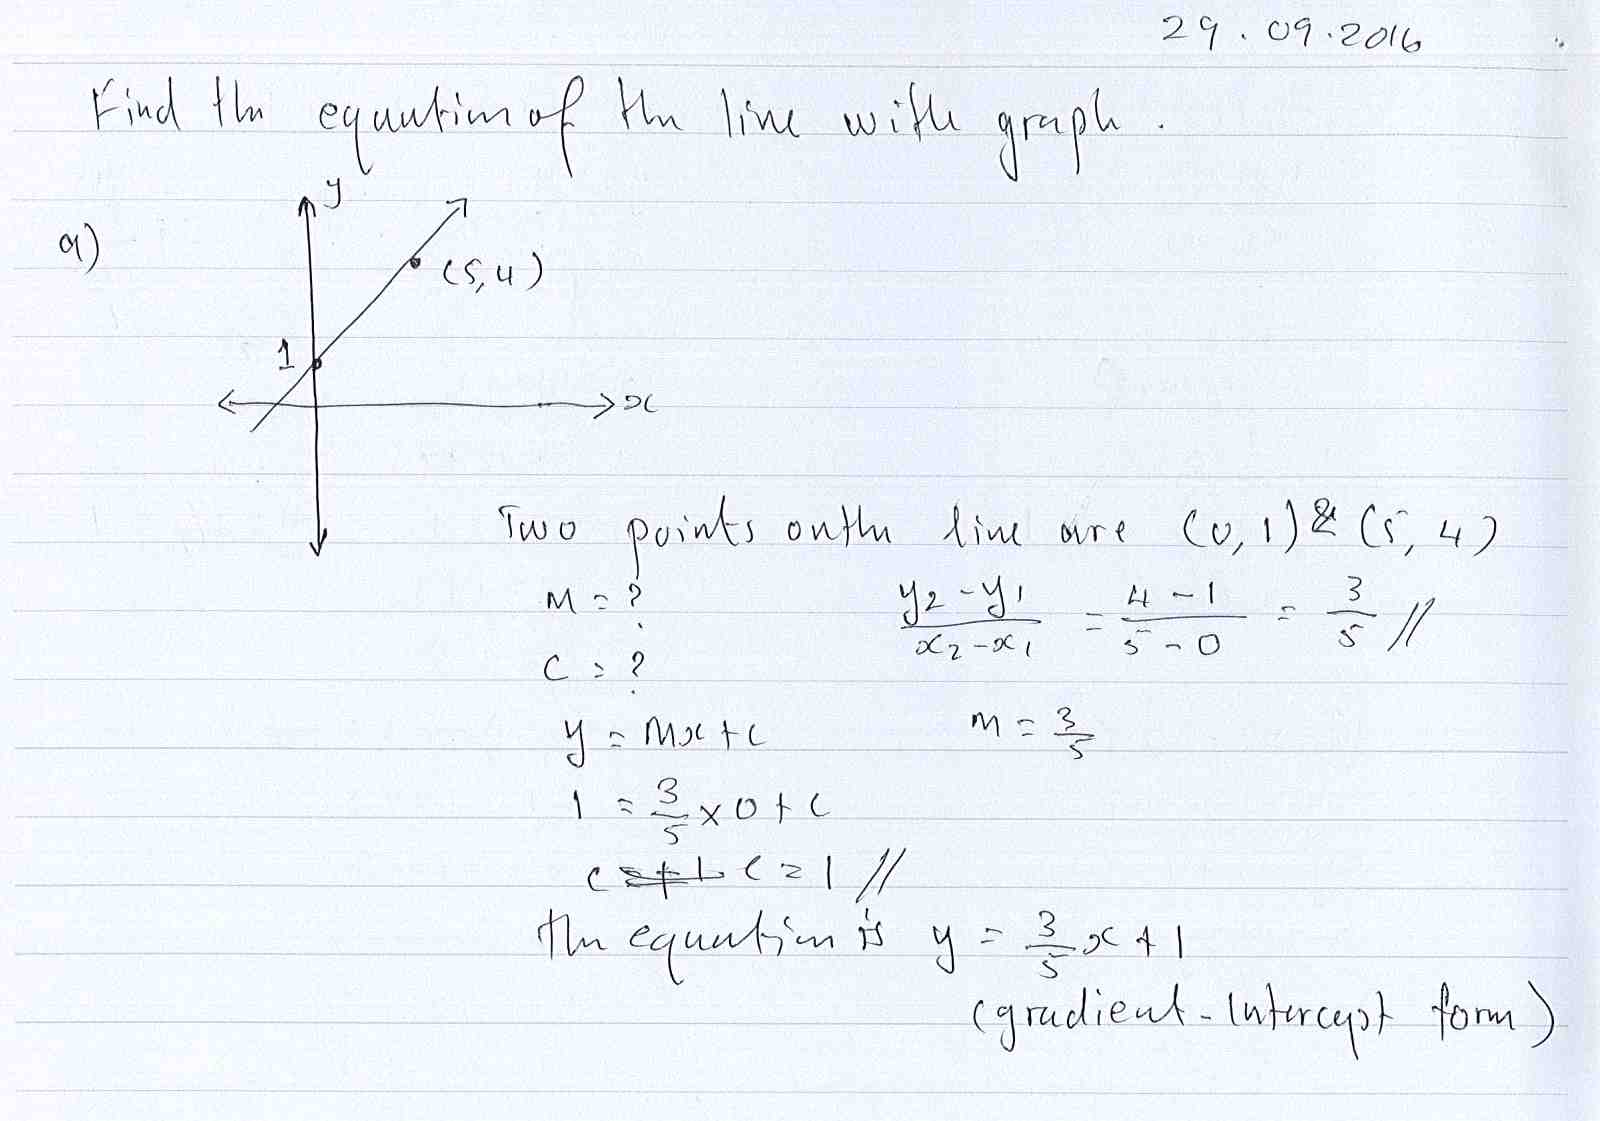 29.09.2016
Find the equation of the line with graph.
a)
y
(5,4)
1
x
Two points on the line are (0,1) & (5,4)
M = ?
y2-y1/x2-x1 = 4-1/5-0 = 3/5 //
C = ?
y = Mx+c
m = 3/5
1 = 3/5 x 0 + c
c = 1 //
the equation is y = 3/5 x + 1
(gradient-Intercept form)